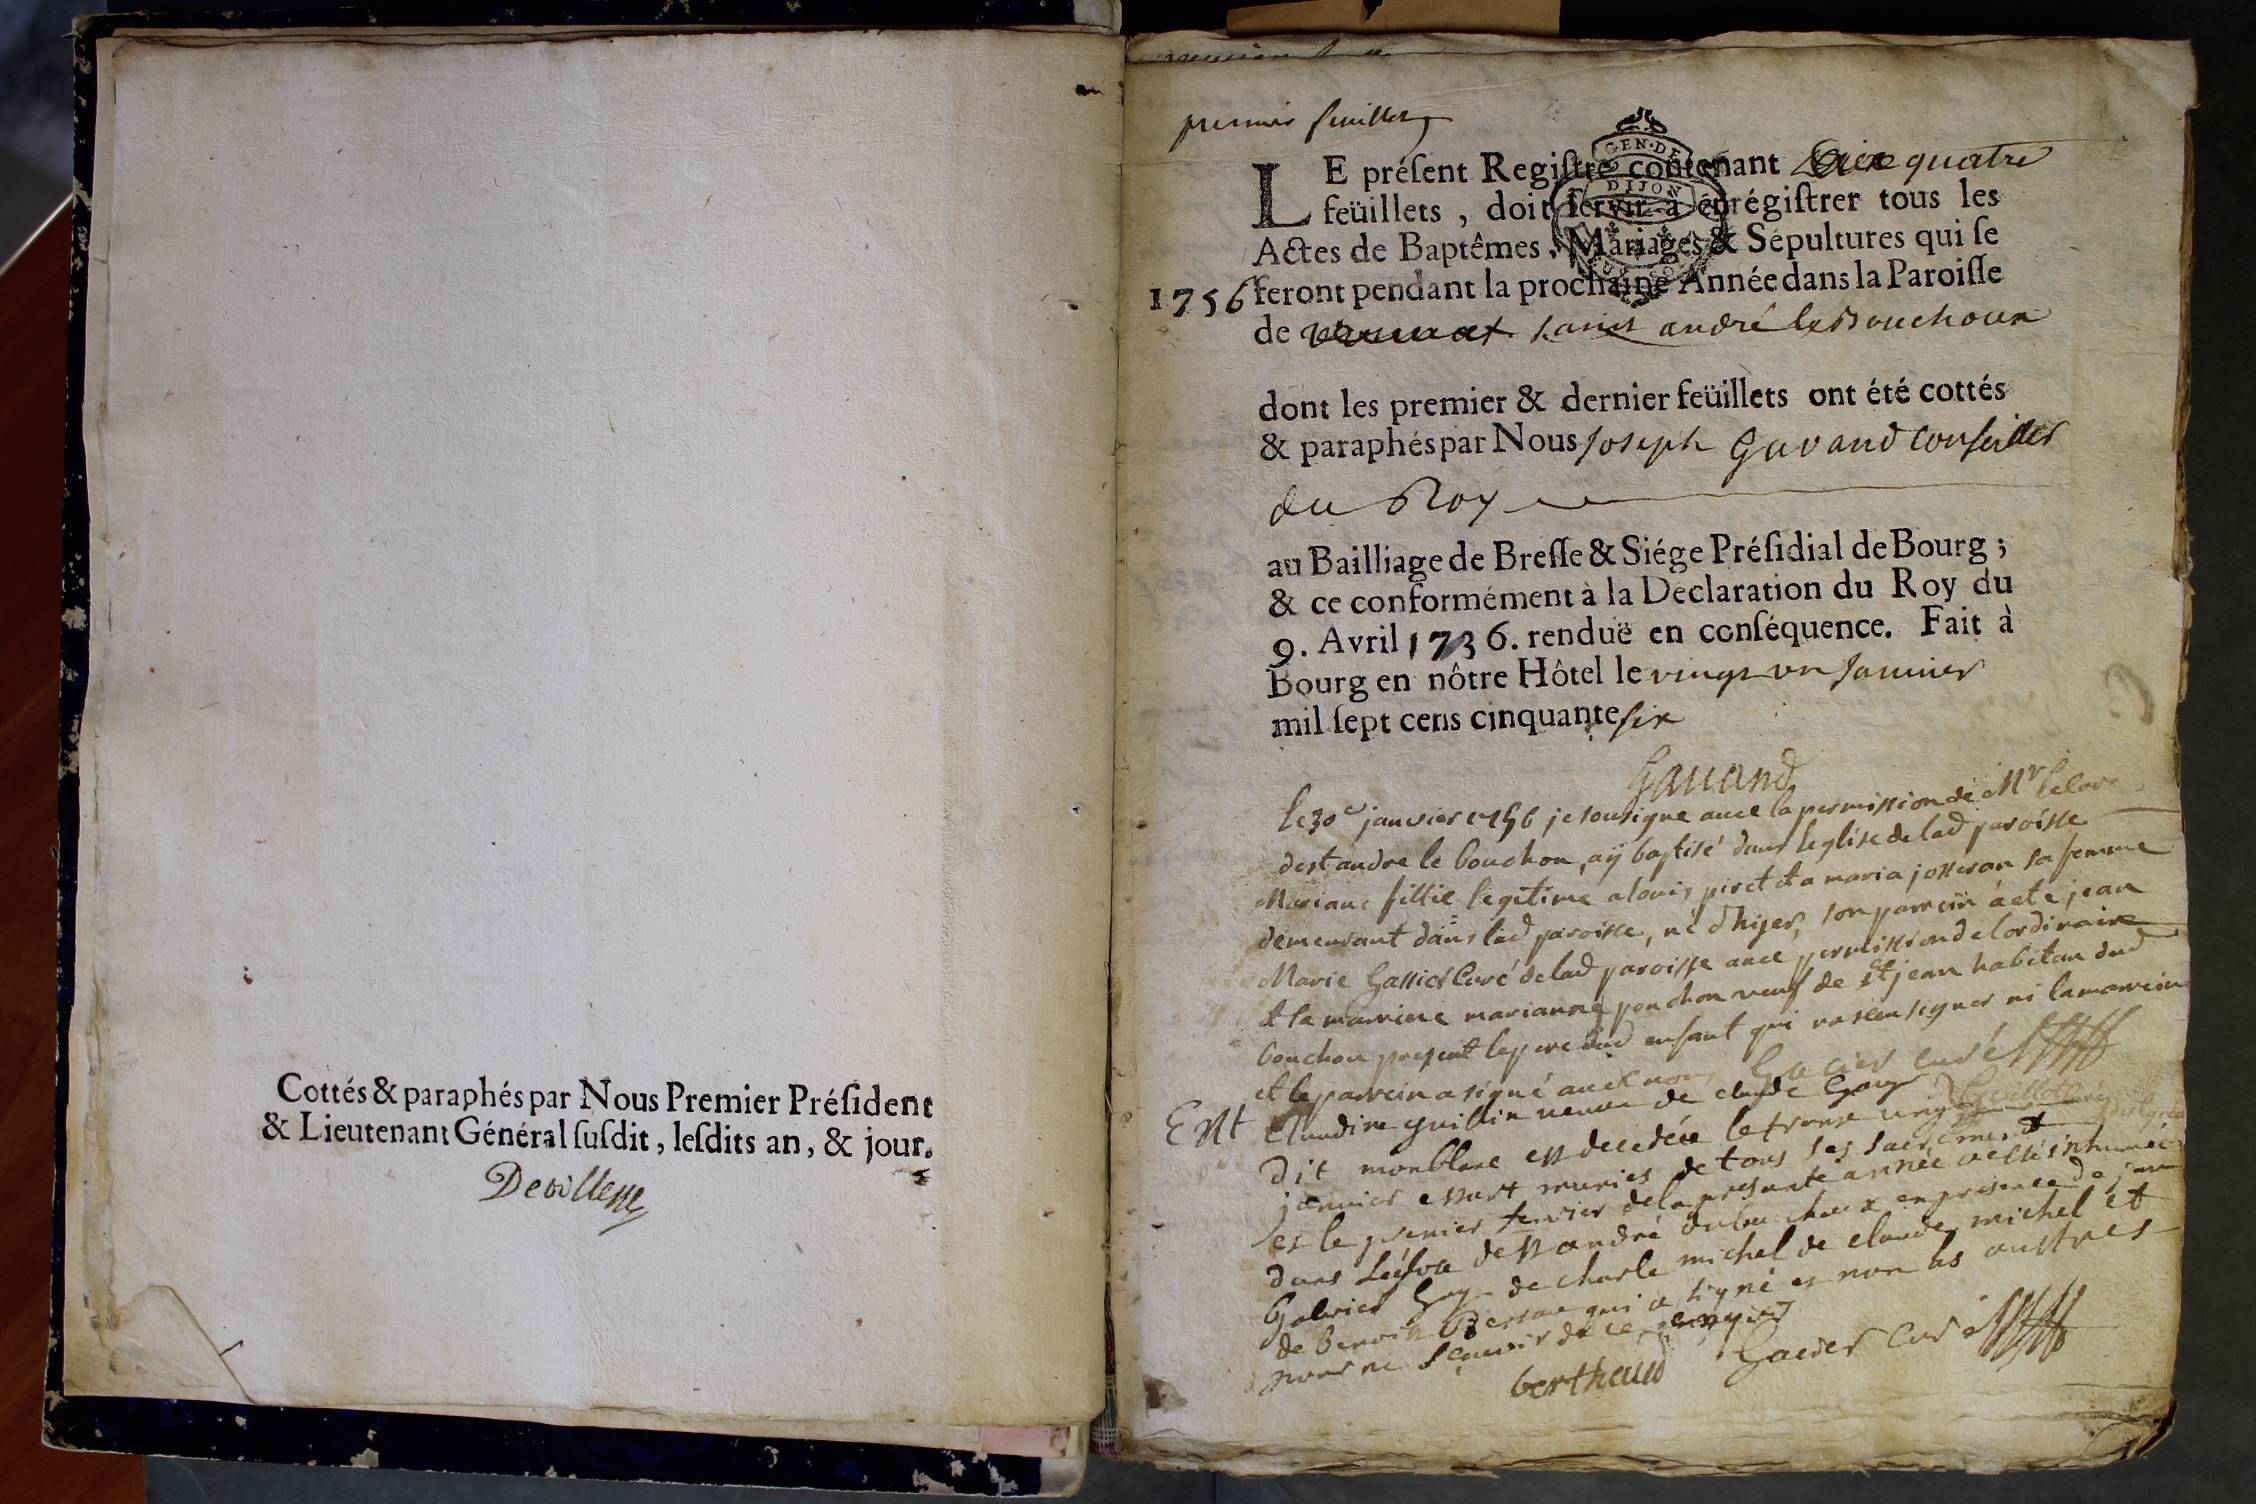 Cottés & paraphés par Nous Premier Président
& Lieutenant Général ſuſdit, leſdits an, & jour.
premier feuillet
GEN·DE
DIJON
LE préſent Regiſtre contenant quatre
feüillets, doit ſervir à énrégiſtrer tous les
Actes de Baptêmes, Mariages & Sépultures qui ſe
1756 feront pendant la prochaine Année dans la Paroiſſe
de saint andré le Bouchoux
dont les premier & dernier feüillets ont été cottés
& paraphés par Nous Joseph Gavand Conseiller
du Roy
au Bailliage de Breſſe & Siége Préſidial de Bourg;
& ce conformément à la Déclaration du Roy du
9. Avril 1736. renduë en conſéquence. Fait à
Bourg en nôtre Hôtel le vingt un Janvier
mil ſept cens cinquante six
Gavand
le 30e janvier 1756 je sousigne avec la permission de Mr
de st andre le bouchon, aÿ baptisé dans leglise de lad paroisse
Mariane fillie legitime a louis piret et a maria josseran sa femme
demeurant dans lad paroisse, né d'hijer, son parrein a ete jean
Marie Gassier Curé de lad paroisse avec permission de lordinaire
et la marreine marianne ponchon veuf de st jean habitan dud
bouchon present le pere dud enfant qui na seu signer ni la marreine
et le parrein a signé avec nous Gacier curé
Ent Claudine guillin veuve de claude Goy
dit monblanc est decedée le trante
janvier munies de tous ses sacrements
et le premier fevrier de la presente année a esté inhumée
dans de st andré du bouchoux en presence de
Gabriel Goy de charle michel de claude michel et
de benoit qui a signé et non les austres
pour ne sçavoir de ce enquis
berthaud Gacier curé